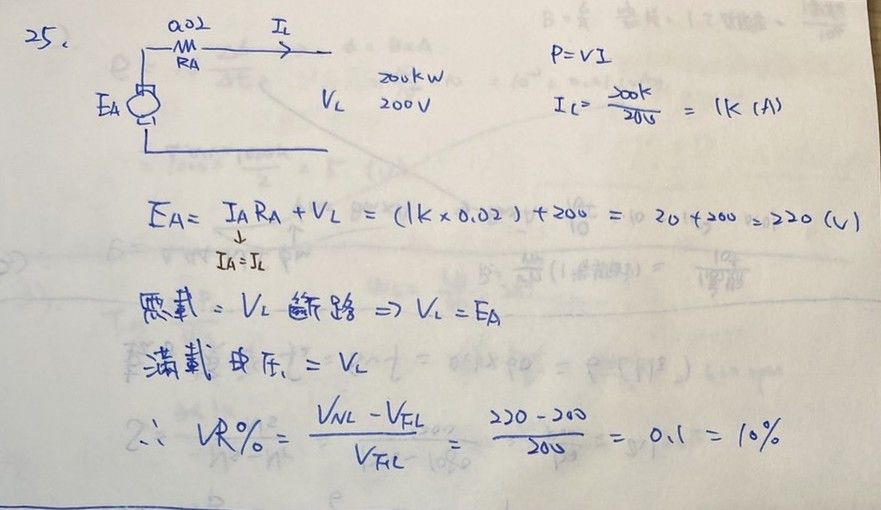 25.
0.02
RA
IL
EA
VL
200kW
200V
P=VI
IL= 200k/200 = 1K (A)
EA= IARA + VL = (1K×0.02)+200 = 20+200=220 (V)
↓
IA=IL
無載 = VL 斷路 => VL=EA
滿載電压 = VL
∴ VR%= (VNL-VFL)/VFL = (220-200)/200 = 0.1 = 10%